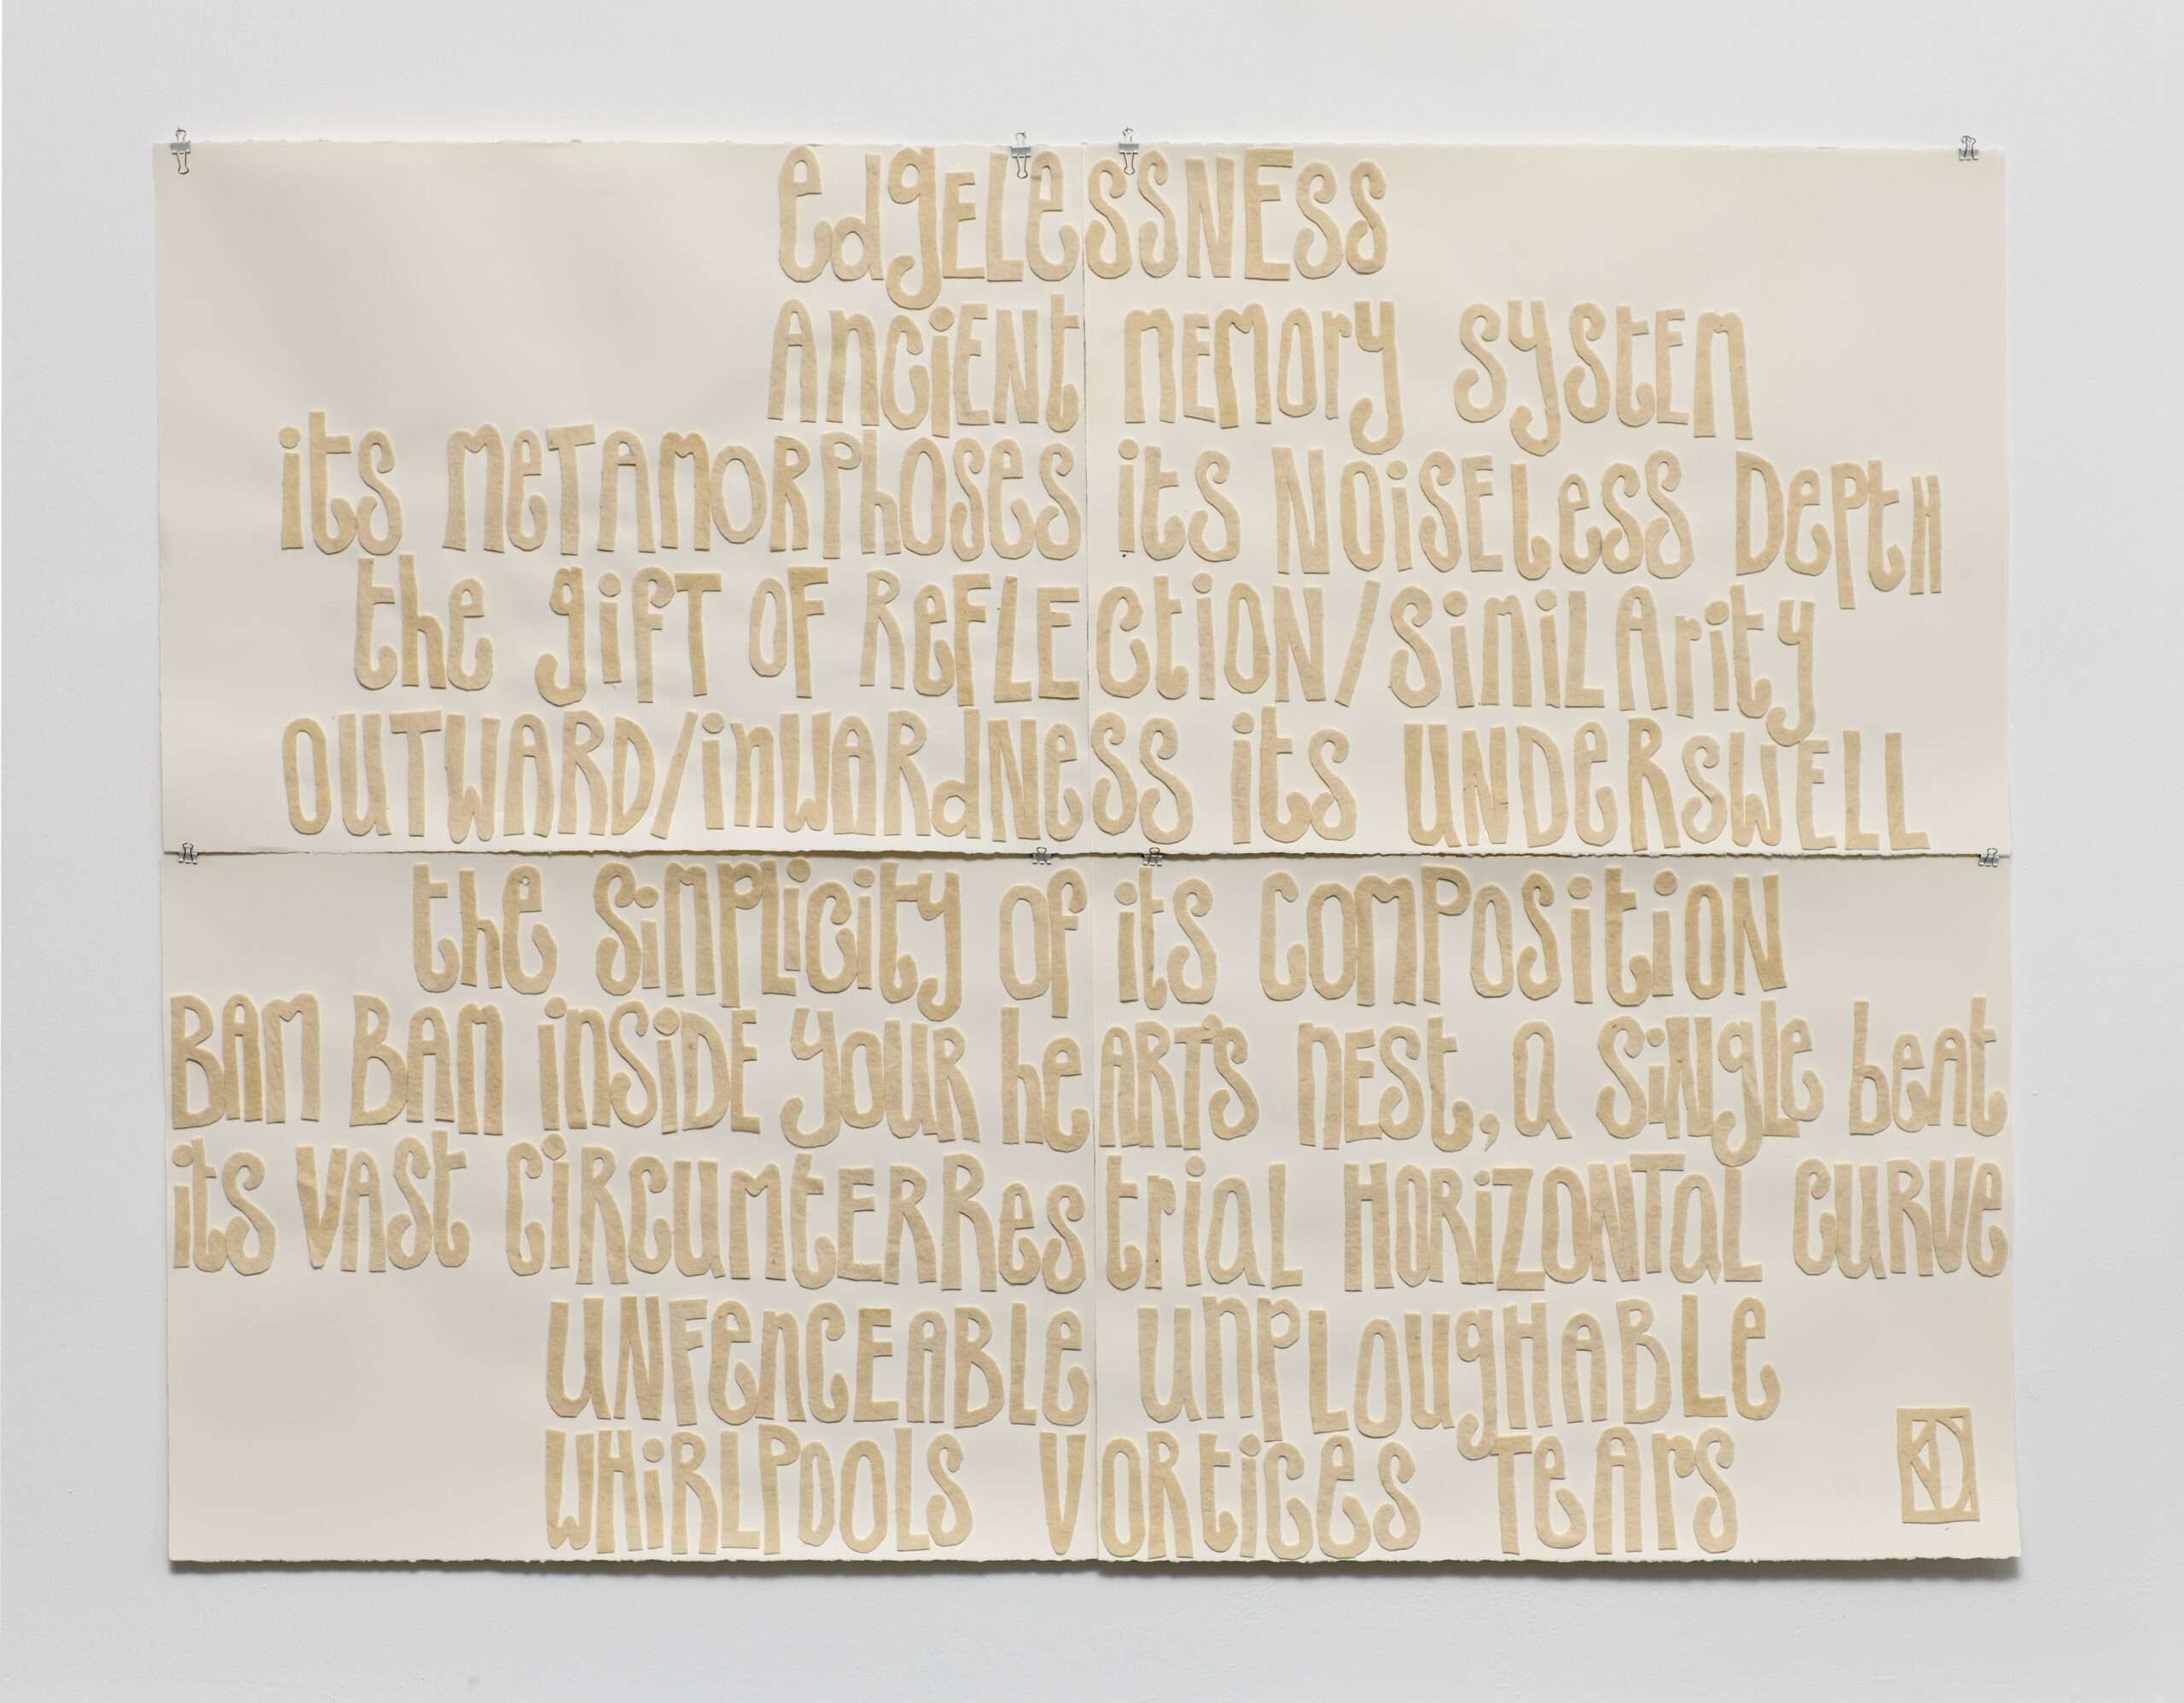 edgELeSSNESS
AnciENt mEMOry SyStEm
its MeTAMORPhOSeS its NOiSELeSS DePtH
the gifT OF ReFLECtiON/SimiLArity
OUTWARD/inWARdNeSS its UNDeRSWELL
the SiMPLicity Of its COMPOSitiON
BAM BAM inSiDE yOUR heART'S nESt, a SiNgLe beAt
its VASt CiRCumtERRestriaL HORiZONTaL CURVe
UNFenCEABLe unPLOugHABLe
WHiRLPOOLS VORtiCeS TeArS
KD